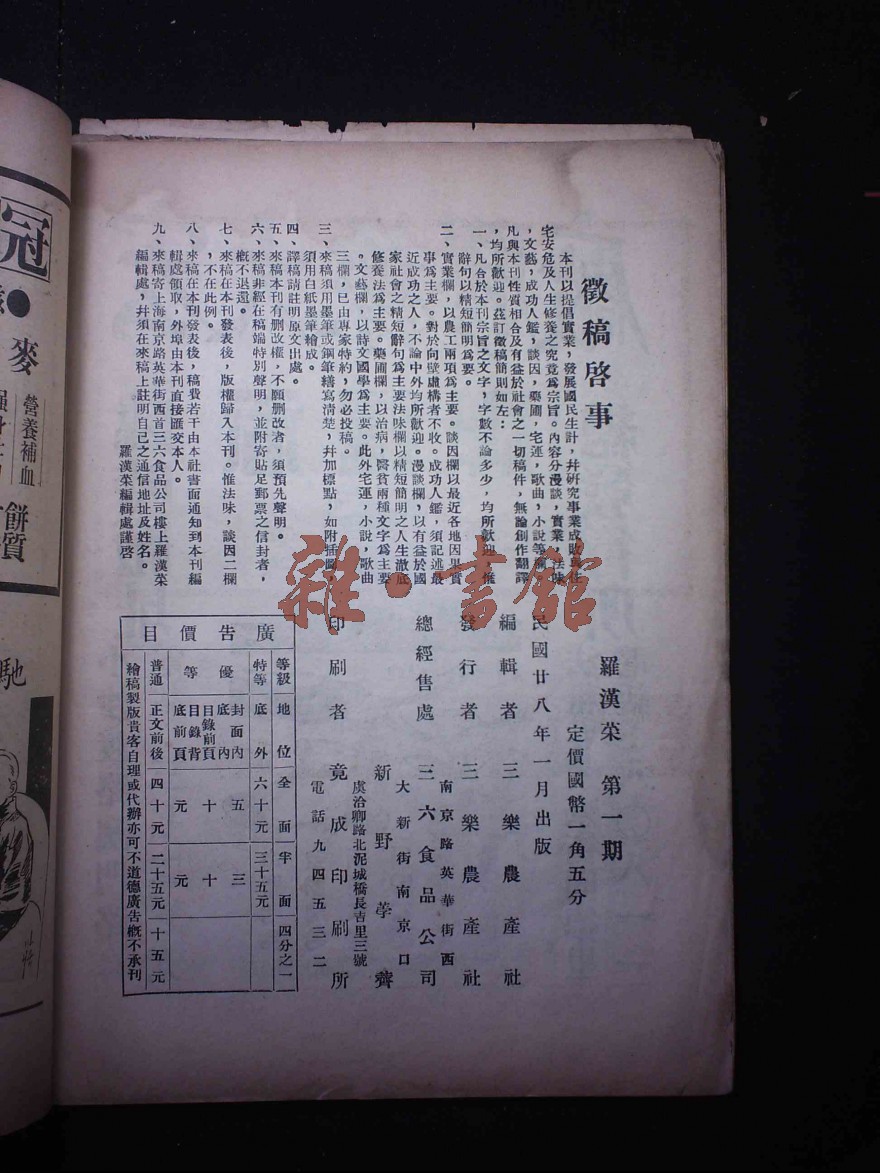 徵稿啓事
本刊以提倡實業，發展國民生計，幷研究事業成敗
宅安危及人生修養之究竟爲宗旨。內容分漫談，實業，法味
，文藝，成功人鑑，談因，藥圃，宅運，歌曲，小說等欄。
凡與本刊性質相合及有益於社會之一切稿件，無論創作翻譯
，均所歡迎。茲訂徵稿簡則如左：
一、凡合於本刊宗旨之文字，字數不論多少，均所歡迎，惟
辭句以精短簡明爲要。
二、實業欄，以農工兩項爲主要。談因欄以最近各地因果實
事爲主要。對於向壁虛構者不收。成功人鑑，須記述最
近成功之人，不論中外均所歡迎。漫談欄，以有益於國
家社會之精短辭句爲主要法味欄以精短簡明之人生澈底
修養法爲主要。藥圃欄，以治病，醫貧兩種文字爲主要
。文藝欄，以詩文國學爲主要。此外宅運，小說，歌曲
三欄，已由專家特約，勿必投稿。
三、來稿須用墨筆或鋼筆繕寫清楚，幷加標點，如附插圖，
須用白紙墨筆繪成。
四、譯稿請註明原文出處。
五、來稿本刊有刪改權，不願刪改者，須預先聲明。
六、來稿非經在稿端特別聲明，並附寄貼足郵票之信封者，
概不退還。
七、來稿在本刊發表後，版權歸入本刊。惟法味，談因二欄
，不在此例。
八、來稿在本刊發表後，稿費若干由本社書面通知到本刊編
輯處領取，外埠由本刊直接匯交本人。
九、來稿寄上海南京路英華街西首三六食品公司樓上羅漢菜
編輯處，幷須在來稿上註明自己之通信地址及姓名。
羅漢菜編輯處謹啓
羅漢菜 第一期
定價國幣一角五分
民國廿八年一月出版
編輯者 三樂農產社
發行者 三樂農產社
南京路英華街西
總經售處 三六食品公司
大新街南京口
新野
虞洽卿路北泥城橋長吉里三號
印刷者 竟成印刷所
電話九四五三二
廣告價目
等級 地位 全面 半面 四分之一
特等 底外 六十元 三十五元
優等 封面內 底內 目錄前頁 目錄背 底前頁 五十元 三十元
普通 正文前後 四十元 二十五元 十五元
繪稿製版貴客自理或代辦亦可不道德廣告概不承刊
雜·書館
冠
麥
營養補血
餅
質
馳